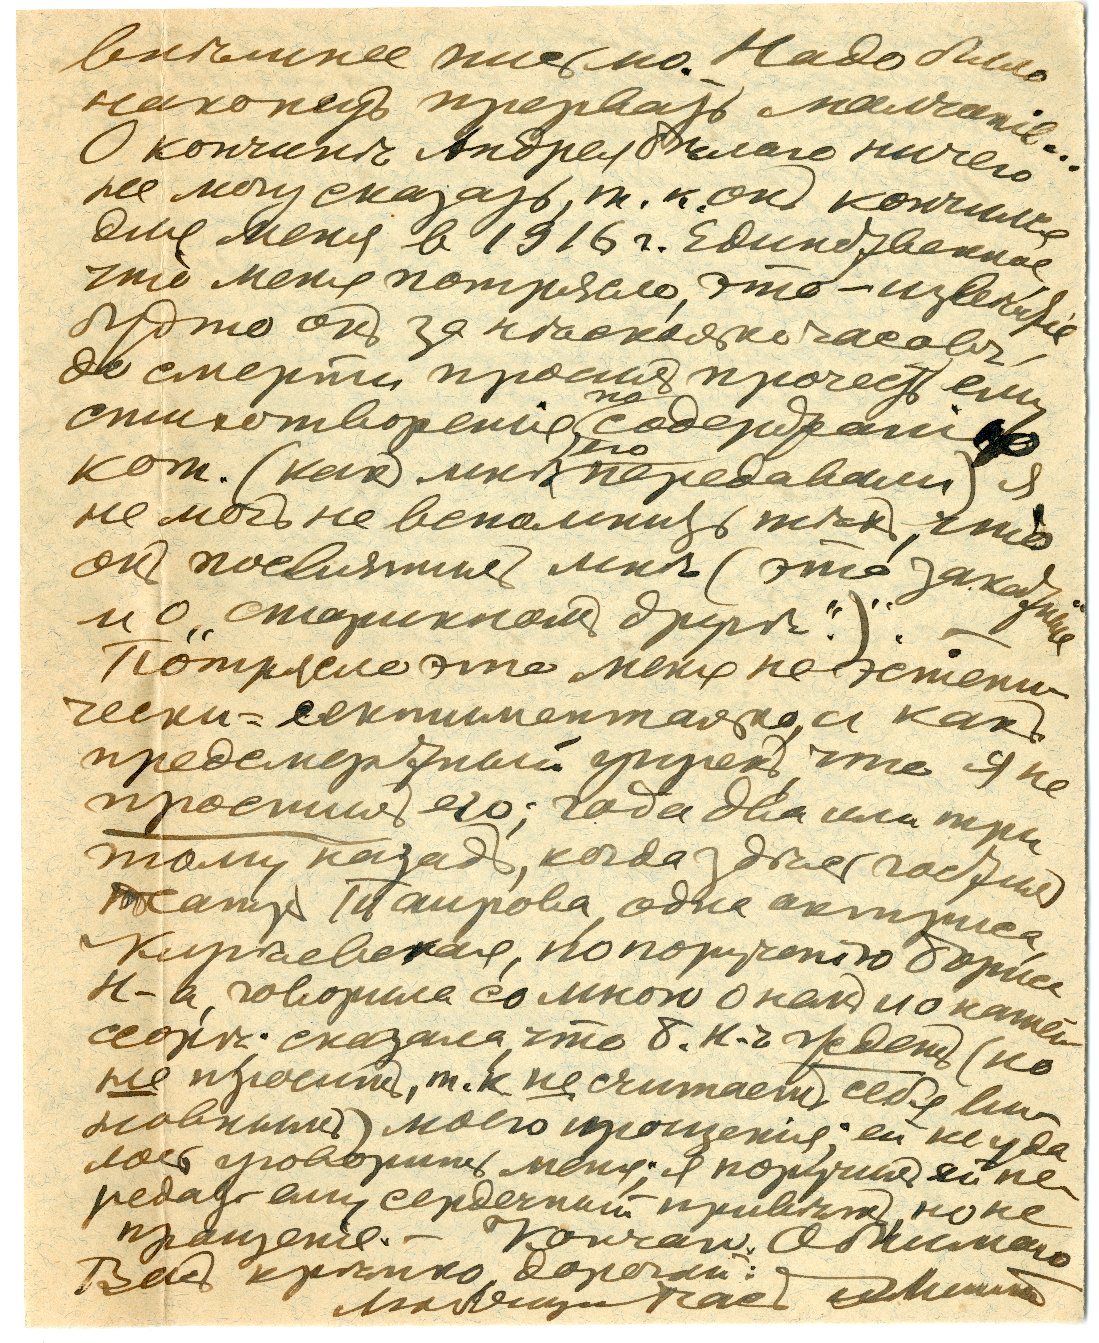 внѣшнее письмо. Надо было
наконецъ прервать молчанiе...
О кончинѣ Андрея Бѣлаго ничего
не могу сказать, т. к. онъ кончился
для меня в 1916 г. Единственное,
что меня потрясло, это – извѣстiе
будто онъ за нѣсколько часовъ
до смерти просилъ прочесть ему
стихотворенiе, по содержанiю
кот. (какъ мнѣ его передавали) я
не могъ не вспомнить тѣхъ, что
онъ посвятилъ мнѣ (это закатные
и о „старинномъ другѣ“).
Потрясло это меня не эстети-
чески-сентиментально, а какъ
предсмертный упрекъ, что я не
простилъ его; года два или три
тому назадъ, когда здѣсь гостилъ
театръ Таирова, одна актриса,
по порученiю Бориса
Н-а, говорила со мной о немъ и о нашей
ссорѣ; сказала, что Б. Н-ч ждетъ (но
не проситъ, т. к не считаетъ себя ви-
новнымъ) моего прощенiя; ей не уда
лось уговорить меня; я поручилъ ей пе-
редать ему сердечный привѣтъ, но не
прощенiе. – Кончаю. Обнимаю
Васъ крѣпко, дорогой:
Любящiй Васъ